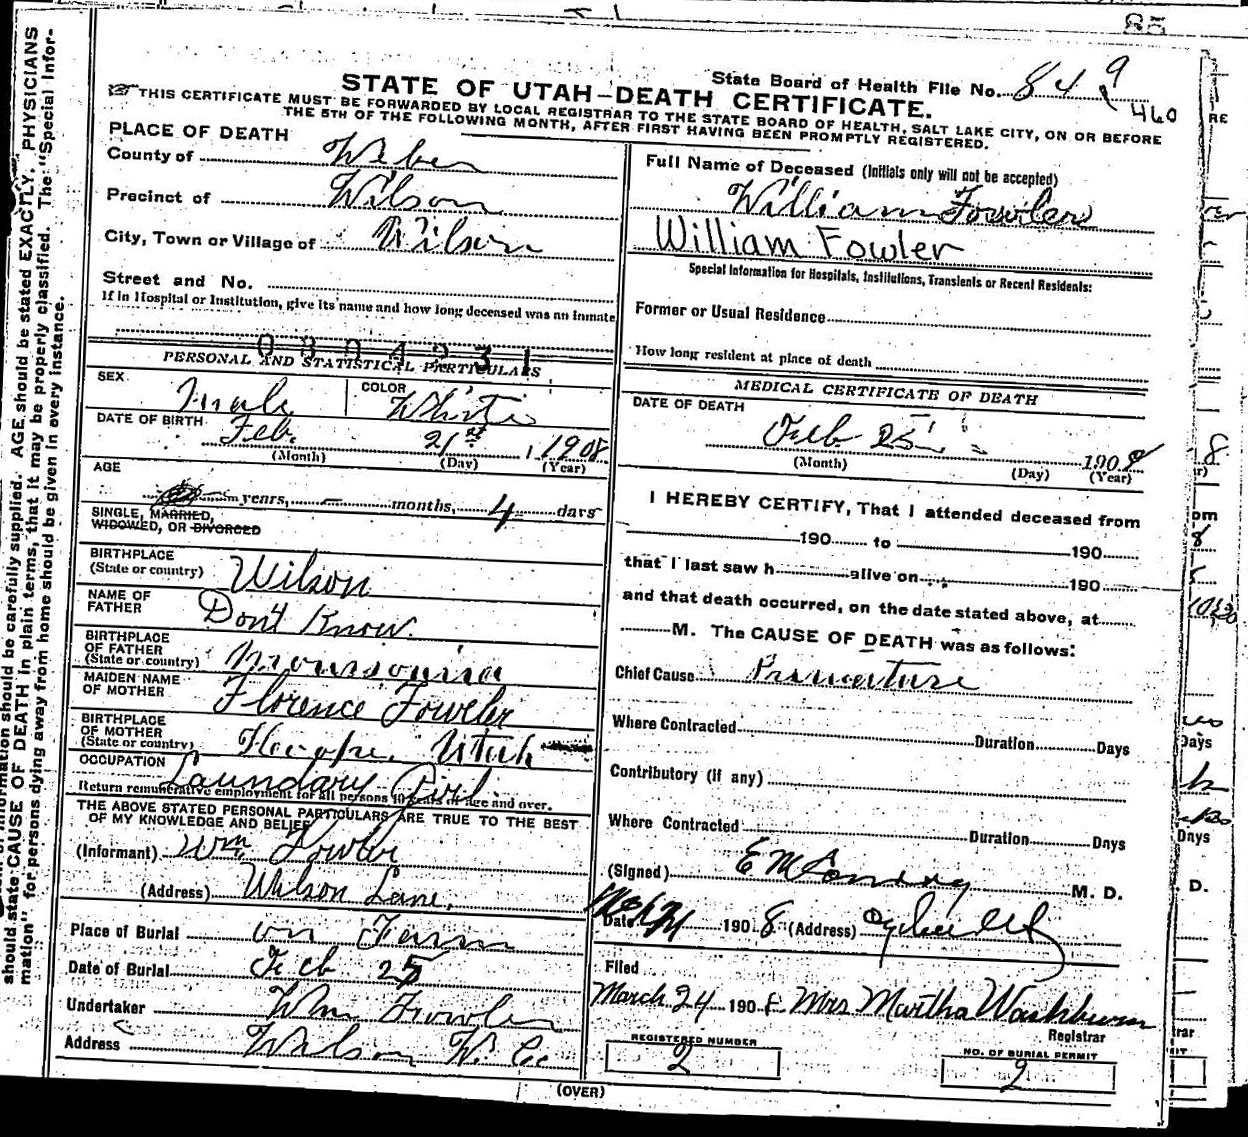 85
State Board of Health File No. 849
STATE OF UTAH—DEATH CERTIFICATE.
460
THIS CERTIFICATE MUST BE FORWARDED BY LOCAL REGISTRAR TO THE STATE BOARD OF HEALTH, SALT LAKE CITY, ON OR BEFORE
THE 5TH OF THE FOLLOWING MONTH, AFTER FIRST HAVING BEEN PROMPTLY REGISTERED.
PLACE OF DEATH
County of Weber
Precinct of Wilson
City, Town or Village of Wilson
Street and No.
If in Hospital or Institution, give its name and how long deceased was an inmate
0304231
PERSONAL AND STATISTICAL PARTICULARS
SEX Male COLOR White
DATE OF BIRTH Feb. 21st, 1908
(Month) (Day) (Year)
AGE
years, months, 4 days
SINGLE, MARRIED,
WIDOWED, OR DIVORCED
BIRTHPLACE
(State or country) Wilson
NAME OF
FATHER Dont Know.
BIRTHPLACE
OF FATHER
(State or country)
MAIDEN NAME
OF MOTHER Florence Fowler
BIRTHPLACE
OF MOTHER
(State or country) Hooper, Utah
OCCUPATION Laundary Girl
Return remunerative employment for all persons 10 years of age and over.
THE ABOVE STATED PERSONAL PARTICULARS ARE TRUE TO THE BEST
OF MY KNOWLEDGE AND BELIEF
(Informant) Wm Fowler
(Address) Wilson Lane.
Place of Burial on Farm
Date of Burial Feb 25
Undertaker Wm Fowler
Address Wilson W. Co
Full Name of Deceased (Initials only will not be accepted)
William Fowler
William Fowler
Special Information for Hospitals, Institutions, Transients or Recent Residents:
Former or Usual Residence
How long resident at place of death
MEDICAL CERTIFICATE OF DEATH
DATE OF DEATH
Feb 25 1908
(Month) (Day) (Year)
I HEREBY CERTIFY, That I attended deceased from
190 to 190
that I last saw h alive on 190
and that death occurred, on the date stated above, at
M. The CAUSE OF DEATH was as follows:
Chief Cause Premature
Where Contracted Duration Days
Contributory (if any)
Where Contracted Duration Days
(Signed) E M M. D.
Date 1908 (Address)
Filed
March 24 1908 Mrs Martha Washburn
Registrar
REGISTERED NUMBER
2
NO. OF BURIAL PERMIT
2
(OVER)
should state CAUSE OF DEATH in plain terms, that it may be properly classified. The "Special Infor-
mation" for persons dying away from home should be given in every instance.
information should be carefully supplied. AGE should be stated EXACTLY. PHYSICIANS